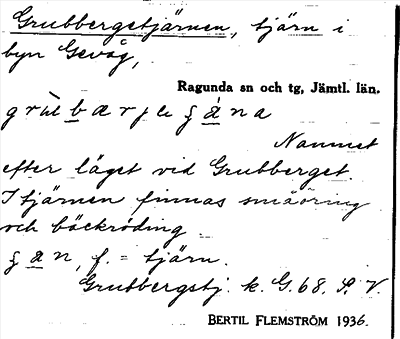 Grubbergstjärnen, tjärn i
byn Gevåg,
Ragunda sn och tg, Jämtl. län.
Namnet
efter läget vid Grubberget.
I tjärnen finnas småöring
och bäckröding
f. = tjärn.
Grubbergstj. k. G. 68. S. V.
BERTIL FLEMSTRÖM 1936.